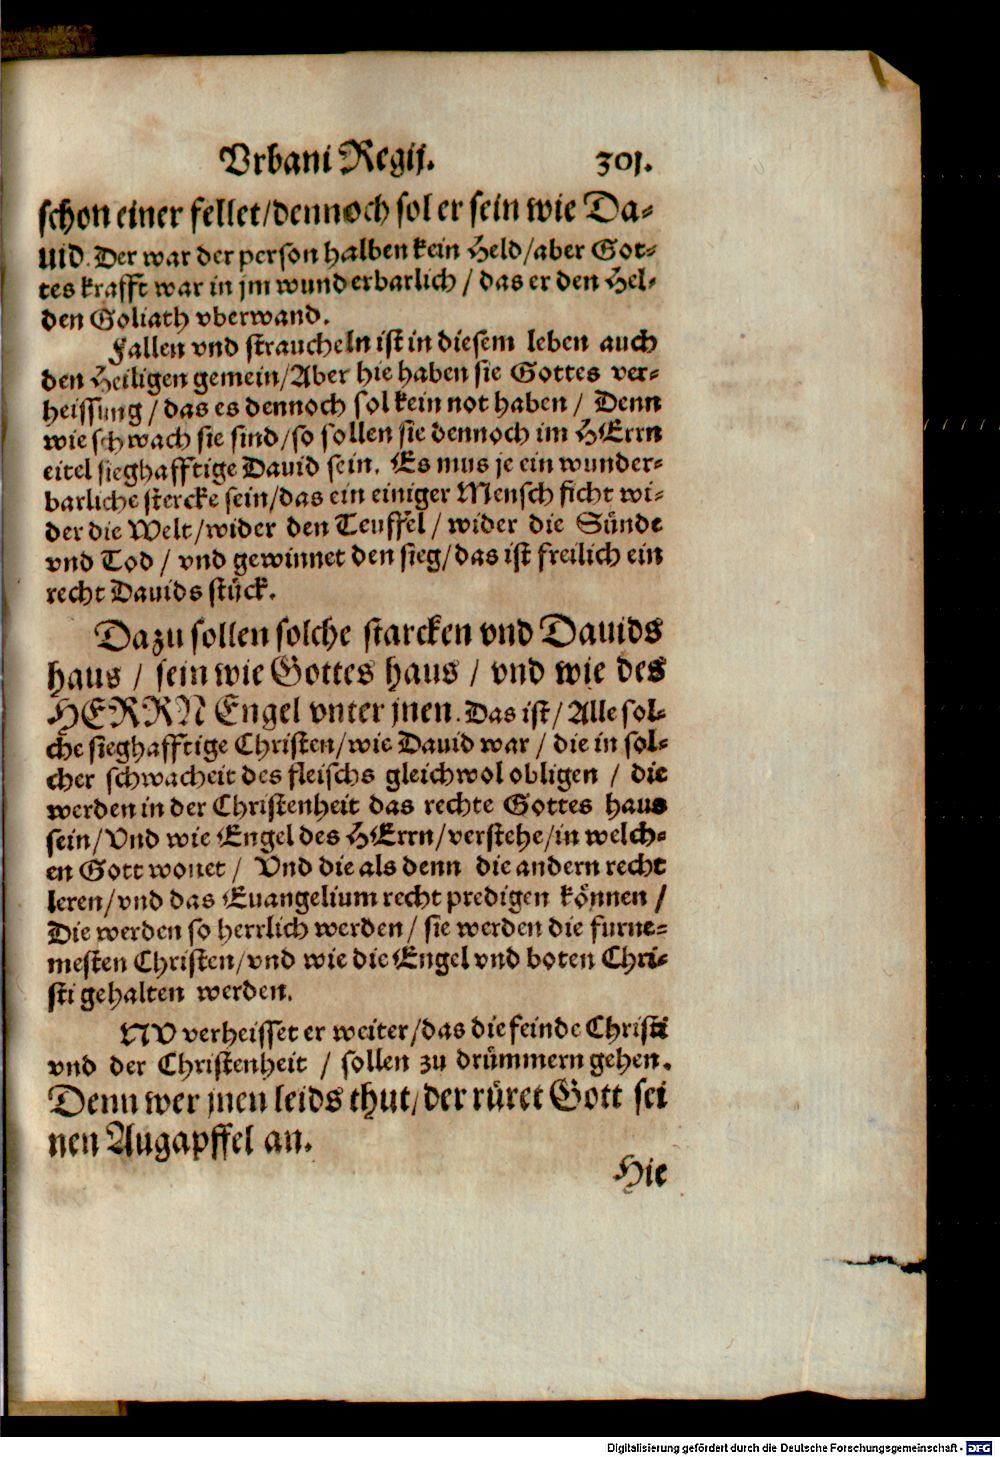 Vrbani Regij. 301.
schon einer fellet/dennoch sol er sein wie Da-
uid. Der war der person halben kein Held/aber Got-
tes krafft war in jm wunderbarlich / das er den Hel-
den Goliath vberwand.
Fallen vnd straucheln ist in diesem leben auch
den Heiligen gemein/Aber hie haben sie Gottes ver-
heissung / das es dennoch sol kein not haben / Denn
wie schwach sie sind/so sollen sie dennoch im HErrn
eitel sieghafftige Dauid sein. Es mus je ein wunder-
barliche stercke sein/das ein einiger Mensch ficht wi-
der die Welt/wider den Teuffel / wider die Sünde
vnd Tod / vnd gewinnet den sieg/das ist freilich ein
recht Dauids stück.
Dazu sollen solche starcken vnd Dauids
haus / sein wie Gottes haus / vnd wie des
HERRN Engel vnter jnen. Das ist/ Alle sol-
che sieghafftige Christen/wie Dauid war / die in sol-
cher schwacheit des fleischs gleichwol obligen / die
werden in der Christenheit das rechte Gottes haus
sein/Vnd wie Engel des HErrn/verstehe/in welch-
en Gott wonet / Vnd die als denn die andern recht
leren/vnd das Euangelium recht predigen können /
Die werden so herrlich werden / sie werden die furne-
mesten Christen/vnd wie die Engel vnd boten Chri-
sti gehalten werden.
NV verheisset er weiter/das die feinde Christi
vnd der Christenheit / sollen zu drümmern gehen.
Denn wer jnen leids thut/der rüret Gott sei
nen Augapffel an.
Hie
Digitalisierung gefördert durch die Deutsche Forschungsgemeinschaft - DFG